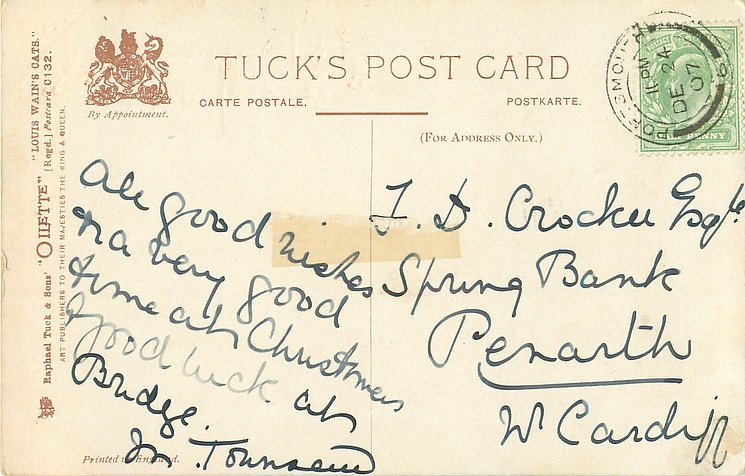 "LOUIS WAIN'S CATS."
"OILETTE" [Regd.] Postcard C132.
Raphael Tuck & Sons'
ART PUBLISHERS TO THEIR MAJESTIES THE KING & QUEEN.
By Appointment.
TUCK'S POST CARD
CARTE POSTALE.
POSTKARTE.
(FOR ADDRESS ONLY.)
PORTSMOUTH
11 PM
DE 24
07
PENNY
All good wishes
for a very good
time at Christmas
& good luck at
Bridge.
Townsend
Printed in England.
J. D. Crocker Esqre.
Spring Bank
Penarth
Nr Cardiff